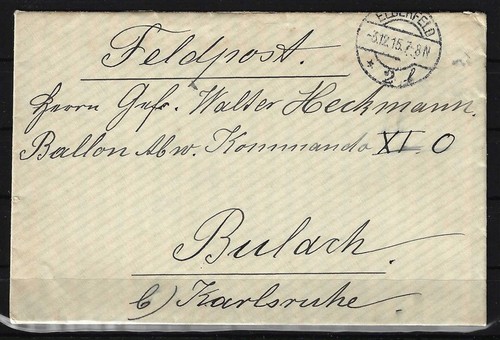 ELBERFELD
-3.12.15.7-8N
* 2 l
Feldpost.
Herrn Gefr. Walter Heckmann.
Ballon Abw. Kommando XI. O
Bulach.
b) Karlsruhe.